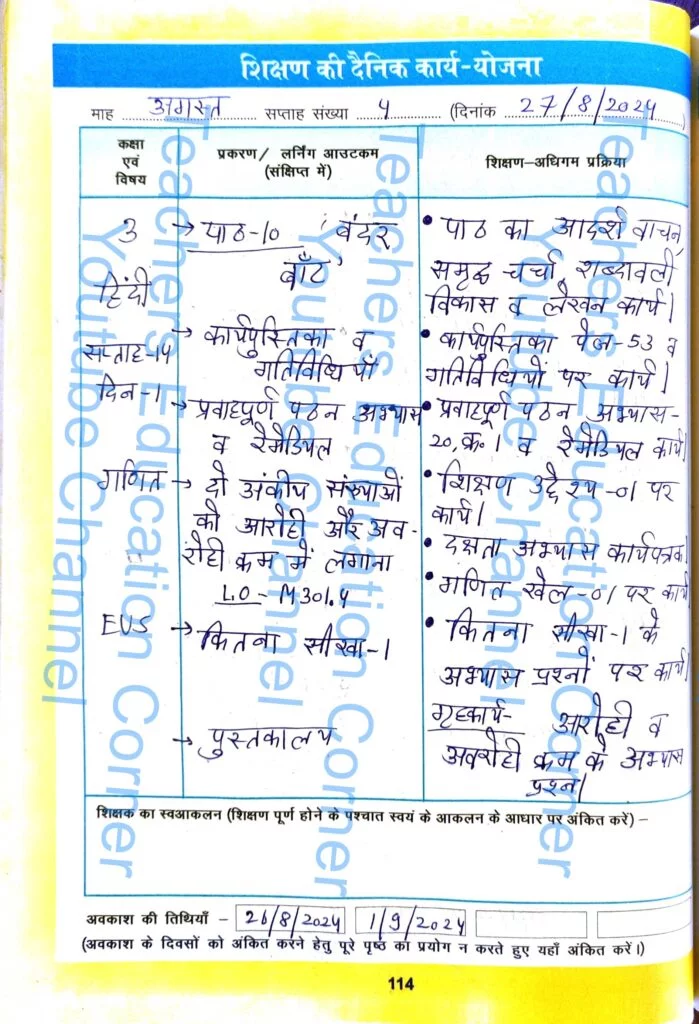 शिक्षण की दैनिक कार्य-योजना
माह अगस्त सप्ताह संख्या 4 (दिनांक 27/8/2024)
कक्षा एवं विषय
प्रकरण/ लर्निंग आउटकम (संक्षिप्त में)
शिक्षण-अधिगम प्रक्रिया
3
हिंदी
सप्ताह-14
दिन-1
→ पाठ-10 'बंदर
बाँट'
→ कार्यपुस्तिका व
गतिविधियाँ
→ प्रवाहपूर्ण पठन अभ्यास
व रैमेडियल
• पाठ का आदर्श वाचन,
समृद्ध चर्चा, शब्दावली
विकास व लेखन कार्य।
• कार्यपुस्तिका पेज-53 व
गतिविधियों पर कार्य।
• प्रवाहपूर्ण पठन अभ्यास-
20, क्र.1 व रैमेडियल कार्य।
गणित
→ दो अंकीय संख्याओं
को आरोही और अव-
रोही क्रम में लगाना
LO - M301.4
• शिक्षण उद्देश्य-01 पर
कार्य।
• दक्षता अभ्यास कार्यपत्रक।
• गणित खेल-01 पर कार्य
EVS
→ कितना सीखा-1
• कितना सीखा-1 के
अभ्यास प्रश्नों पर कार्य।
→ पुस्तकालय
गृहकार्य- आरोही व
अवरोही क्रम के अभ्यास
प्रश्न।
शिक्षक का स्वआकलन (शिक्षण पूर्ण होने के पश्चात स्वयं के आकलन के आधार पर अंकित करें) –
अवकाश की तिथियाँ – 26/8/2024 1/9/2024
(अवकाश के दिवसों को अंकित करने हेतु पूरे पृष्ठ का प्रयोग न करते हुए यहाँ अंकित करें।)
114
Teachers Education Corner
Youtube Channel
Teachers Education Corner
Youtube Channel
Teachers Education Corner
Youtube Channel